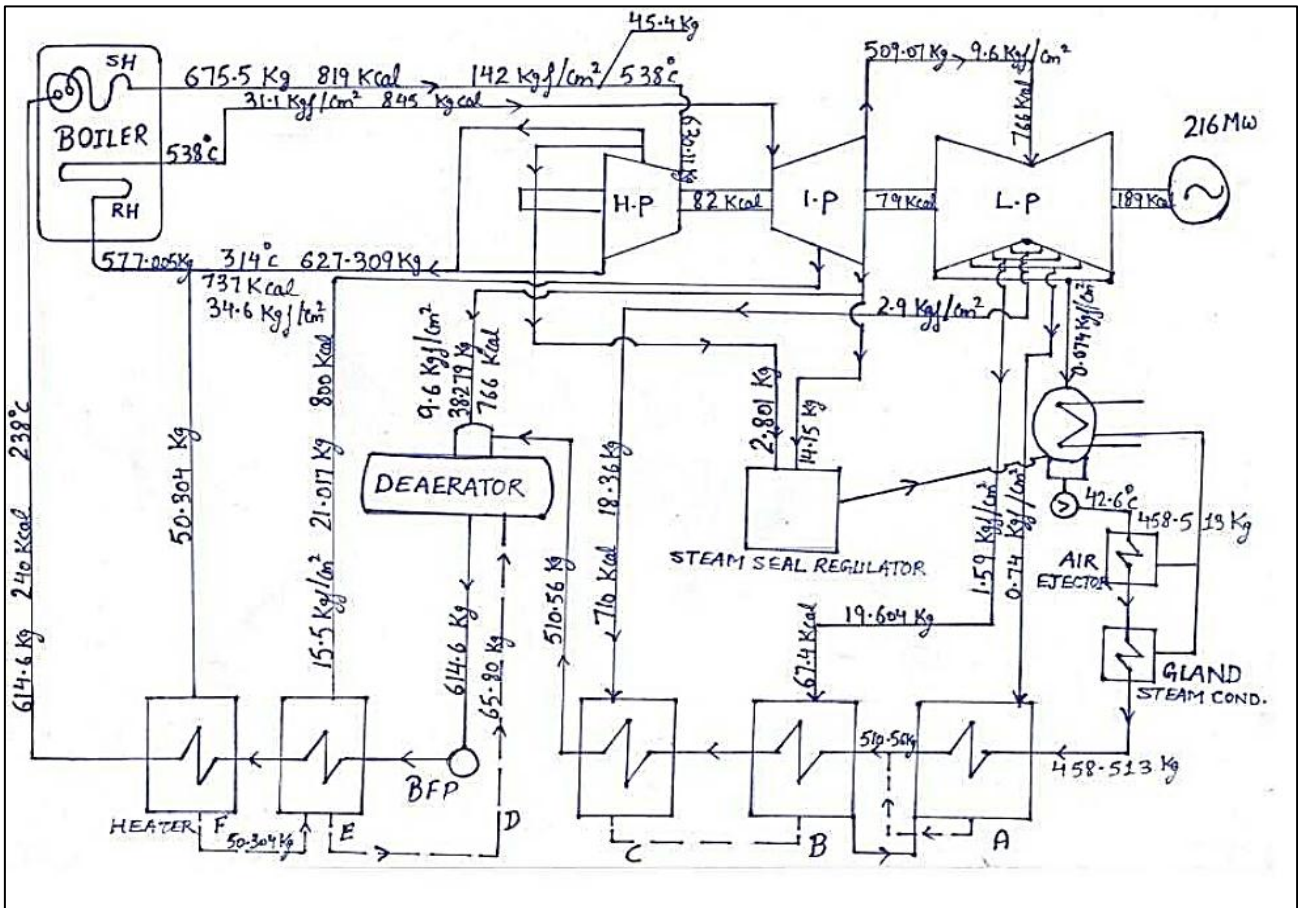 45.4 Kg
SH
675.5 Kg 819 Kcal 142 Kgf/cm² 538°c
509.07 Kg 9.6 Kgf/cm²
31.1 Kgf/cm² 845 Kgcal
BOILER
538°c
RH
766 Kcal
216 MW
H.P
82 Kcal
I.P
79 Kcal
L.P
189 Kcal
577.005Kg 314°c 627.309Kg
737 Kcal
34.6 Kgf/cm²
2.9 Kgf/cm²
0.074 Kgf/cm²
614.6 Kg 240 Kcal 238°c
50.304 Kg
15.5 Kgf/cm² 21.017 Kg 800 Kcal
9.6 Kgf/cm²
38.279 Kg
766 Kcal
DEAERATOR
614.6 Kg
65.80 Kg
510.56 Kg
710 Kcal 18.36 Kg
2.801 Kg
14.15 Kg
STEAM SEAL REGULATOR
1.59 Kgf/cm²
0.74 Kgf/cm²
42.6°c
458.513 Kg
AIR
EJECTOR
GLAND
STEAM COND.
67.4 Kcal
19.604 Kg
510.56Kg
458.513 Kg
BFP
HEATER F
50.304 Kg
E
D
C
B
A